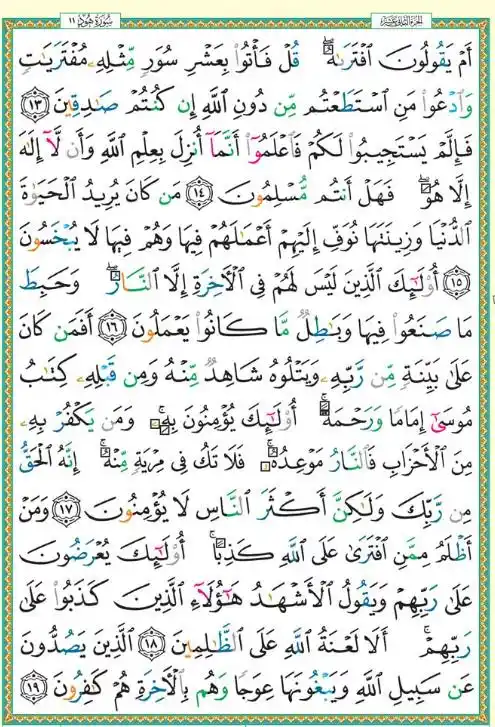 سورة هود ١١ الجزء الثاني عشر
أَمْ يَقُولُونَ ٱفْتَرَىٰهُ ۖ قُلْ فَأْتُوا۟ بِعَشْرِ سُوَرٍ مِّثْلِهِۦ مُفْتَرَيَٰتٍ
وَٱدْعُوا۟ مَنِ ٱسْتَطَعْتُم مِّن دُونِ ٱللَّهِ إِن كُنتُمْ صَٰدِقِينَ ﴿١٣﴾
فَإِلَّمْ يَسْتَجِيبُوا۟ لَكُمْ فَٱعْلَمُوٓا۟ أَنَّمَآ أُنزِلَ بِعِلْمِ ٱللَّهِ وَأَن لَّآ إِلَٰهَ
إِلَّا هُوَ ۖ فَهَلْ أَنتُم مُّسْلِمُونَ ﴿١٤﴾ مَن كَانَ يُرِيدُ ٱلْحَيَوٰةَ
ٱلدُّنْيَا وَزِينَتَهَا نُوَفِّ إِلَيْهِمْ أَعْمَٰلَهُمْ فِيهَا وَهُمْ فِيهَا لَا يُبْخَسُونَ
﴿١٥﴾ أُو۟لَٰٓئِكَ ٱلَّذِينَ لَيْسَ لَهُمْ فِى ٱلْءَاخِرَةِ إِلَّا ٱلنَّارُ ۖ وَحَبِطَ
مَا صَنَعُوا۟ فِيهَا وَبَٰطِلٌ مَّا كَانُوا۟ يَعْمَلُونَ ﴿١٦﴾ أَفَمَن كَانَ
عَلَىٰ بَيِّنَةٍ مِّن رَّبِّهِۦ وَيَتْلُوهُ شَاهِدٌ مِّنْهُ وَمِن قَبْلِهِۦ كِتَٰبُ
مُوسَىٰٓ إِمَامًا وَرَحْمَةً ۚ أُو۟لَٰٓئِكَ يُؤْمِنُونَ بِهِۦ ۚ وَمَن يَكْفُرْ بِهِۦ
مِنَ ٱلْأَحْزَابِ فَٱلنَّارُ مَوْعِدُهُۥ ۚ فَلَا تَكُ فِى مِرْيَةٍ مِّنْهُ ۚ إِنَّهُ ٱلْحَقُّ
مِن رَّبِّكَ وَلَٰكِنَّ أَكْثَرَ ٱلنَّاسِ لَا يُؤْمِنُونَ ﴿١٧﴾ وَمَنْ
أَظْلَمُ مِمَّنِ ٱفْتَرَىٰ عَلَى ٱللَّهِ كَذِبًا ۚ أُو۟لَٰٓئِكَ يُعْرَضُونَ
عَلَىٰ رَبِّهِمْ وَيَقُولُ ٱلْأَشْهَٰدُ هَٰٓؤُلَآءِ ٱلَّذِينَ كَذَبُوا۟ عَلَىٰ
رَبِّهِمْ ۚ أَلَا لَعْنَةُ ٱللَّهِ عَلَى ٱلظَّٰلِمِينَ ﴿١٨﴾ ٱلَّذِينَ يَصُدُّونَ
عَن سَبِيلِ ٱللَّهِ وَيَبْغُونَهَا عِوَجًا وَهُم بِٱلْءَاخِرَةِ هُمْ كَٰفِرُونَ ﴿١٩﴾